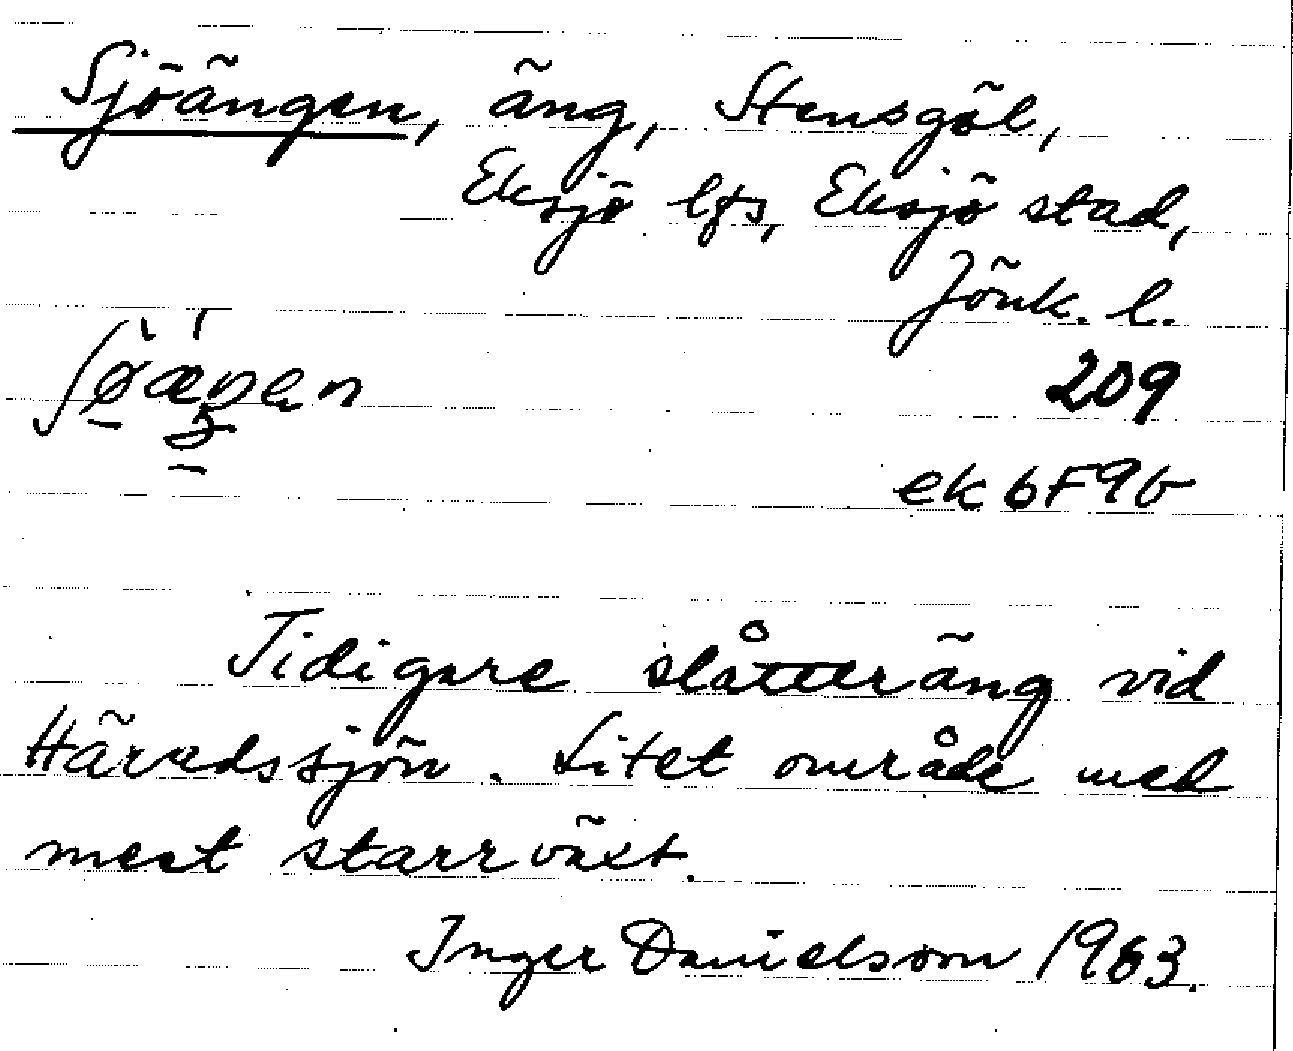 Sjöängen, äng, Stensgöl,
Eksjö lfs, Eksjö stad,
Jönk. l.
209
ek 6F9b
Tidigare slåtteräng vid
Häradssjön. Litet område med
mest starrväxt.
Inger Danielsson 1963.